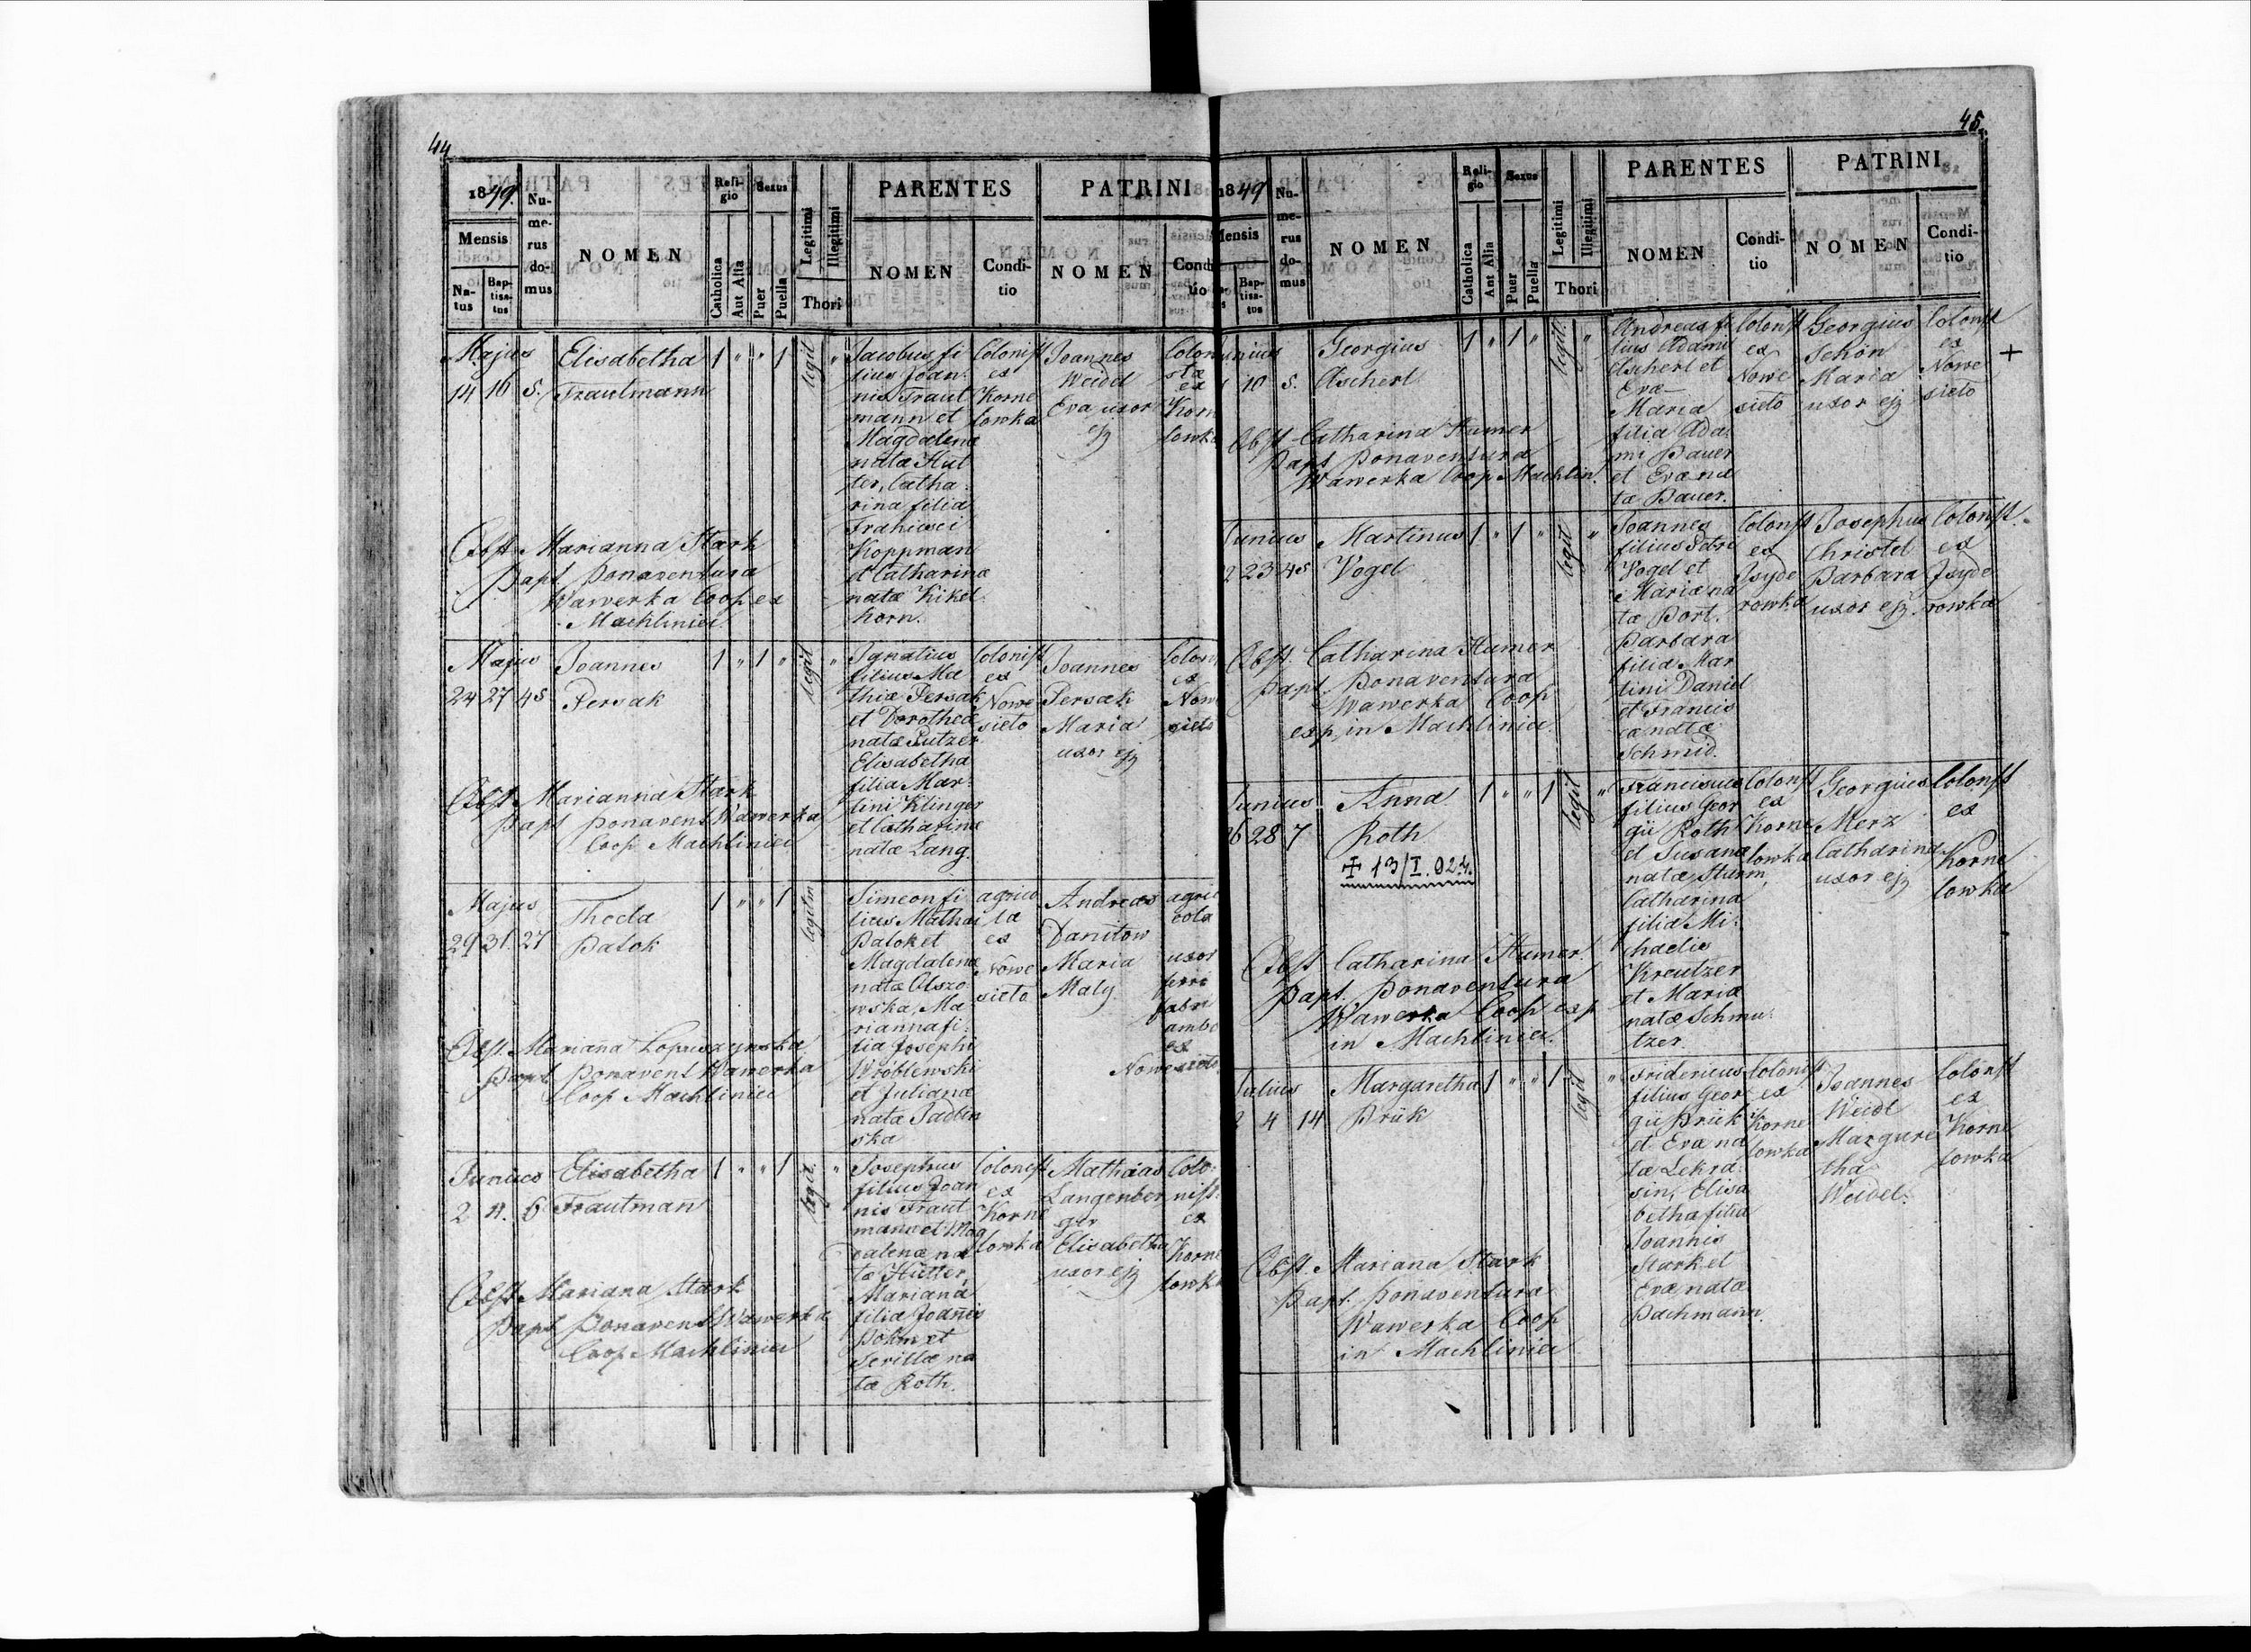 44
1849.
Nu-
me-
rus
do-
mus
NOMEN
Reli-
gio
Sexus
Legitimi
Illegitimi
PARENTES
PATRINI
Mensis
Na-
tus
Bap-
tisa-
tus
Catholica
Aut Alia
Puer
Puella
Thori
NOMEN
Condi-
tio
NOMEN
Condi
tio
Majus
14 16 5.
Elisabetha
Trautmann
1 " " 1 legit "
Jacobus fi
lius Joan
nis Traut
mann et
Magdalena
nata Hut
ter, Catha
rina filia
Francisci
Koppman
et Catharina
nata Kikel
horn.
Colonist
ex
Korne
lowka
Joannes
Weidel
Eva uxor
ej
Coloni
stæ
ex
Korn
lowka
Obst. Marianna Stark
Bapt Bonaventura
Wawerka Coop ex
Machliniec
Majus
24 27 45
Joannes
Persak
1 " 1 " legit "
Ignatius
filius Ma
thiæ Persak
et Dorothea
nata Putzer
Elisabetha
filia Mar
tini Klinger
et Catharina
nata Lang.
Colonist
ex
Nowe
sieto
Joannes
Persak
Maria
uxor ej
Colon
ex
Now
sieto
Obst Marianna Stark
Bapt Bonavent Wawerka
Coop Machliniec
Majus
29 31. 27
Thecla
Batok
1 " " 1 legitm "
Simeon fi
lius Mathæi
Batok et
Magdalena
nata Olszo
wska, Ma
rianna fi
lia Josephi
Wróblewski
et Juliana
nata
ska
agrico
la
ex
Nowe
sieto
Andreas
Danitow
Maria
Maly
agri
cola
uxor
ferri
fabri
ambo
ex
Nowesieto
Obst. Mariana
Bapt Bonavent Wawerka
Coop Machliniec
Junius
2 4. 6
Elisabetha
Trautmañ
1 " " 1 legit. "
Josephus
filius Joan
nis Traut
mann et Mag
dalena na
ta Hutter,
Mariana
filia Joannis
Böhm et
Sevilla na
ta Roth.
Colonist
ex
Korne
lowka
Mathias
Langenber
ger
Elisabetha
uxor ej
Colo
nist.
ex
Korne
lowka
Obst Mariana Stark
Bapt Bonavent Wawerka
Coop Machliniec
45.
1849
Nu-
me-
rus
do-
mus
NOMEN
Reli-
gio
Sexus
Legitimi
Illegitimi
PARENTES
PATRINI
Mensis
Bap-
tisa-
tus
Catholica
Aut Alia
Puer
Puella
Thori
NOMEN
Condi-
tio
NOMEN
Condi-
tio
Junius
10 5.
Georgius
Ascherl
1 " 1 " legit. "
Andreas fi
lius Adami
Ascherl et
Eva
Maria
filia Ada
mi Bauer
et Eva na
ta Bauer.
Colonist
ex
Nowe
sieto
Georgius
Schön
Maria
uxor ej
Colonist
ex
Nowe
sieto
+
Obst Catharina Humer
Bapt Bonaventura
Wawerka Coop Machlin.
Junius
23 45
Martinus
Vogel
1 " 1 " legit "
Joannes
filius Petri
Vogel et
Maria na
ta Bort.
Barbara
filia Mar
tini Daniel
et Francis
ca nata
Schmid.
Colonist
ex
Isyde
rowka
Josephus
Christel
Barbara
uxor ej.
Colonist.
ex
Isyde
rowka
Obst. Catharina Humer
Bapt. Bonaventura
Wawerka Coop
exp. in Machliniec
Junius
26 28 7
Anna
Roth
+ 13/I. 924.
1 " " 1 legit "
Franciscus
filius Geor
gii Roth
et Susana
nata Sturm,
Catharina
filia Mi
chaelis
Kreutzer
et Maria
nata Schmu
tzer.
Colonist
ex
Korne
lowka
Georgius
Merz
Catharina
uxor ej
Colonist
ex
Korne
lowka
Obst Catharina Humer
Bapt. Bonaventura
Wawerka Coop exp
in Machliniec.
Julius
2 4 14
Margaretha
Brük
1 " " 1 legit "
Fridericus
filius Geor
gii Brük
et Eva na
ta Lekra
sin, Elisa
betha filia
Joannis
Stark et
Eva nata
Bachmann.
Colonist
ex
Korne
lowka
Joannes
Weidl
Margare
tha
Weidel.
Colonist
ex
Korne
lowka
Obst. Mariana Stark
Bapt. Bonaventura
Wawerka Coop
in Machliniec